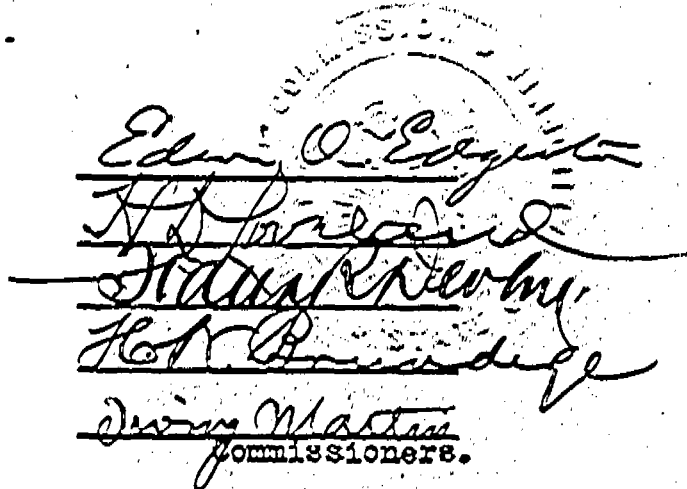 Edwin O. Edgerton
H. D. Loveland
Frank R. Devlin
H. W. Brundige
Irving Martin
Commissioners.